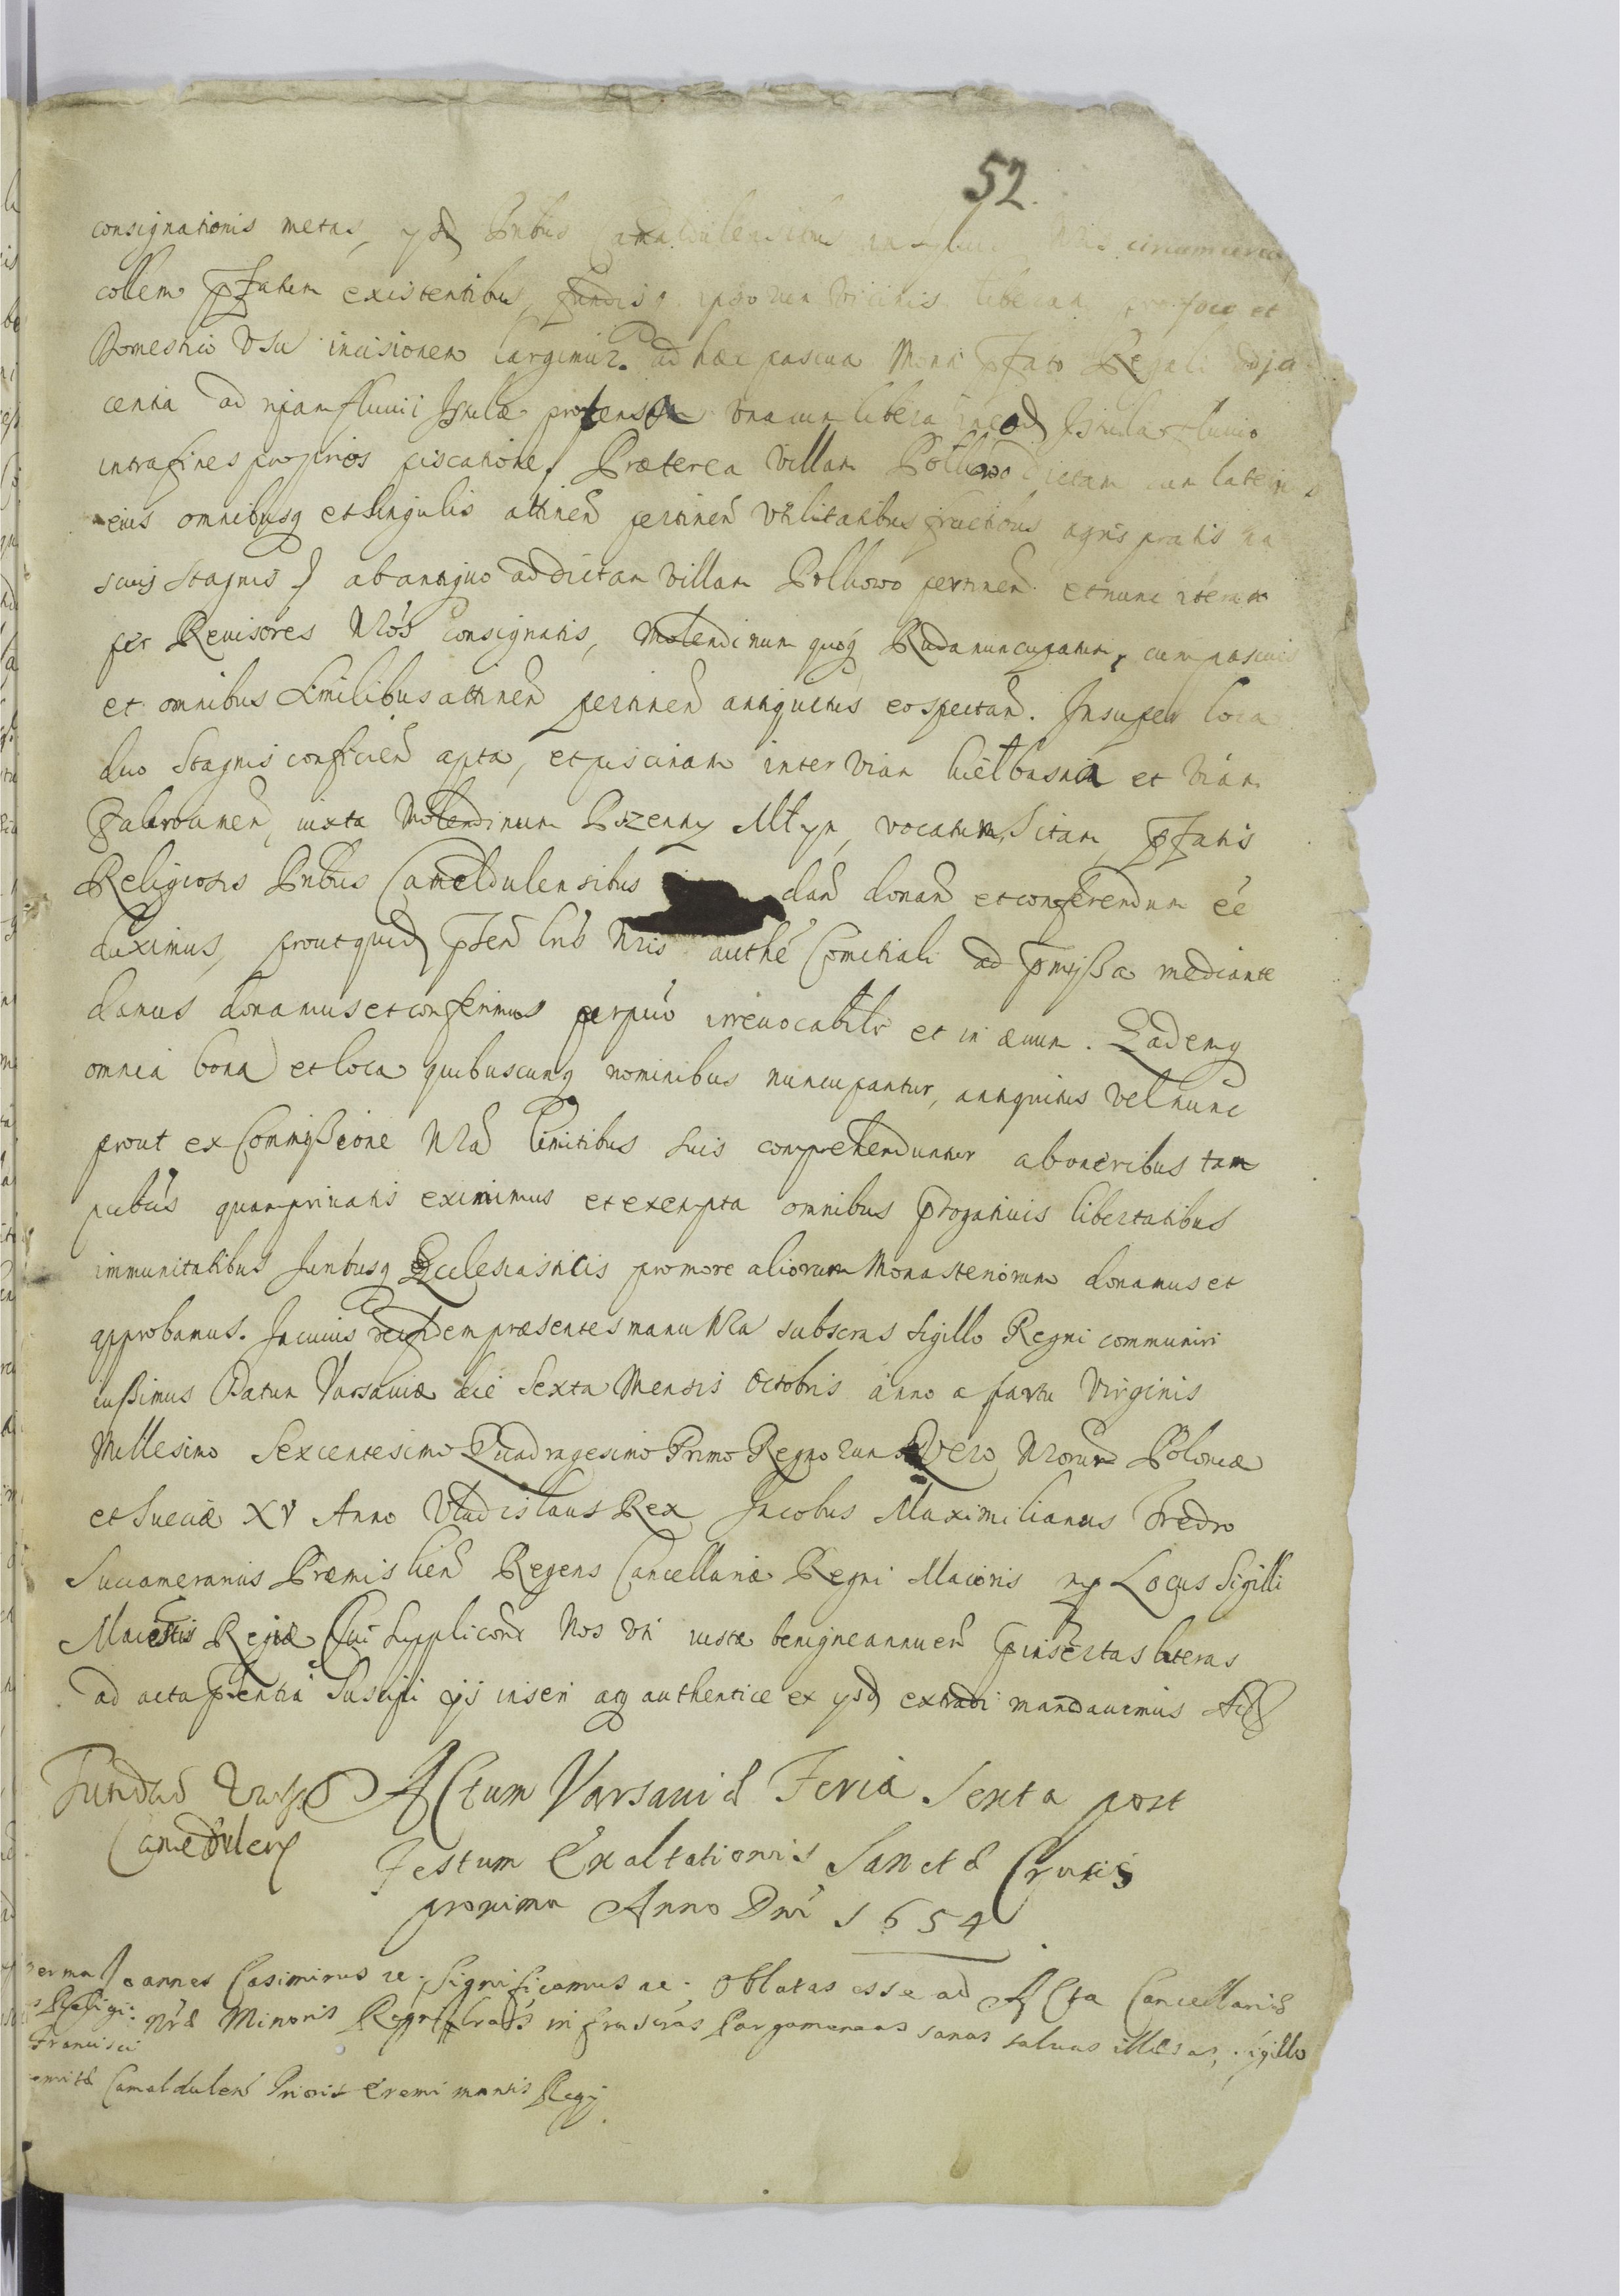 52.
consignationis metas, ysd Prbus Camaldulensibus in sylvis circumcirca
collem pfatum existentibus, fundisq ipsorum vicinis liberam pro foco et
Domestico usu incisionem largimur. ad hæc pascua Monti pfato Regali adja
centia ad ripam fluvii Istulæ protensa una cum libera in eod Istula fluvio
intra fines proprios piscatione. Præterea villam Polkowo dictam cum
eius omnibusq et singulis attinen pertinen utilitatibus fructibus agris pratis
scuis stagnis ab antiquo ad dictam villam Polkowo pertinen et nunc iterum
per Revisores Nros consignatis, Molendinum quoq Ruda nuncupatum, cum pascuis
et omnibus similibus attinen pertinen antiquitus eo spectan. Insuper loca
duo stagnis conficien apta, et piscinam inter viam Kiełbasna et viam
iuxta Molendinum Pszenny Młyn, vocatum, sitam, pfatis
Religiosis Prbus Cameldulensibus dan donan et conferendum eē
duximus, prout quid pſen lrīs Nris authē Comitiali ad pmißa mediante
damus donamus et conferimus perpuo irrevocabilr et in ævum. Eademq
omnia bona et loca quibuscunq nominibus nuncupantur, antiquitus vel nunc
prout ex Commißione Nra limitibus suis comprehenduntur ab oneribus tam
pubcis quam privatis eximimus et exempta omnibus progativis libertatibus
immunitatibus Juribusq Ecclesiasticis pro more aliorum Monasteriorum donamus et
approbamus. In cuius rei fidem præsentes manu Nra subscras Sigillo Regni communiri
iußimus Datum Varsaviæ die Sexta Mensis Octobris anno a partu Virginis
Millesimo Sexcentesimo Quadragesimo Primo Regnorum Vero Nrorum Poloniæ
et Sueciæ XV Anno Vladislaus Rex Jacobus Maximilianus Fredro
Succamerarius Præmislien Regens Cancellariæ Regni Maioris mp Locus Sigilli
Maiestis Regiæ Cui Supplicōni Nos uti iustæ benigne annuen pinsertas literas
ad acta psentia suscipi ijs inseri atq authentice ex ysd extradi mandavimus
Actum Varsaviæ Feria Sexta post
Camedulen
Festum Exaltationis Sanctæ Crucis
proxima Anno Dni 1654.
Joannes Casimirus re. Significamus re. Oblatas esse ad Acta Cancellariæ
Nræ Minoris Regni lras infrascras Pargameneas sanas salvas illæsas, sigillo
Francisci
Camaldulen Prioris Eremi Montis Regij